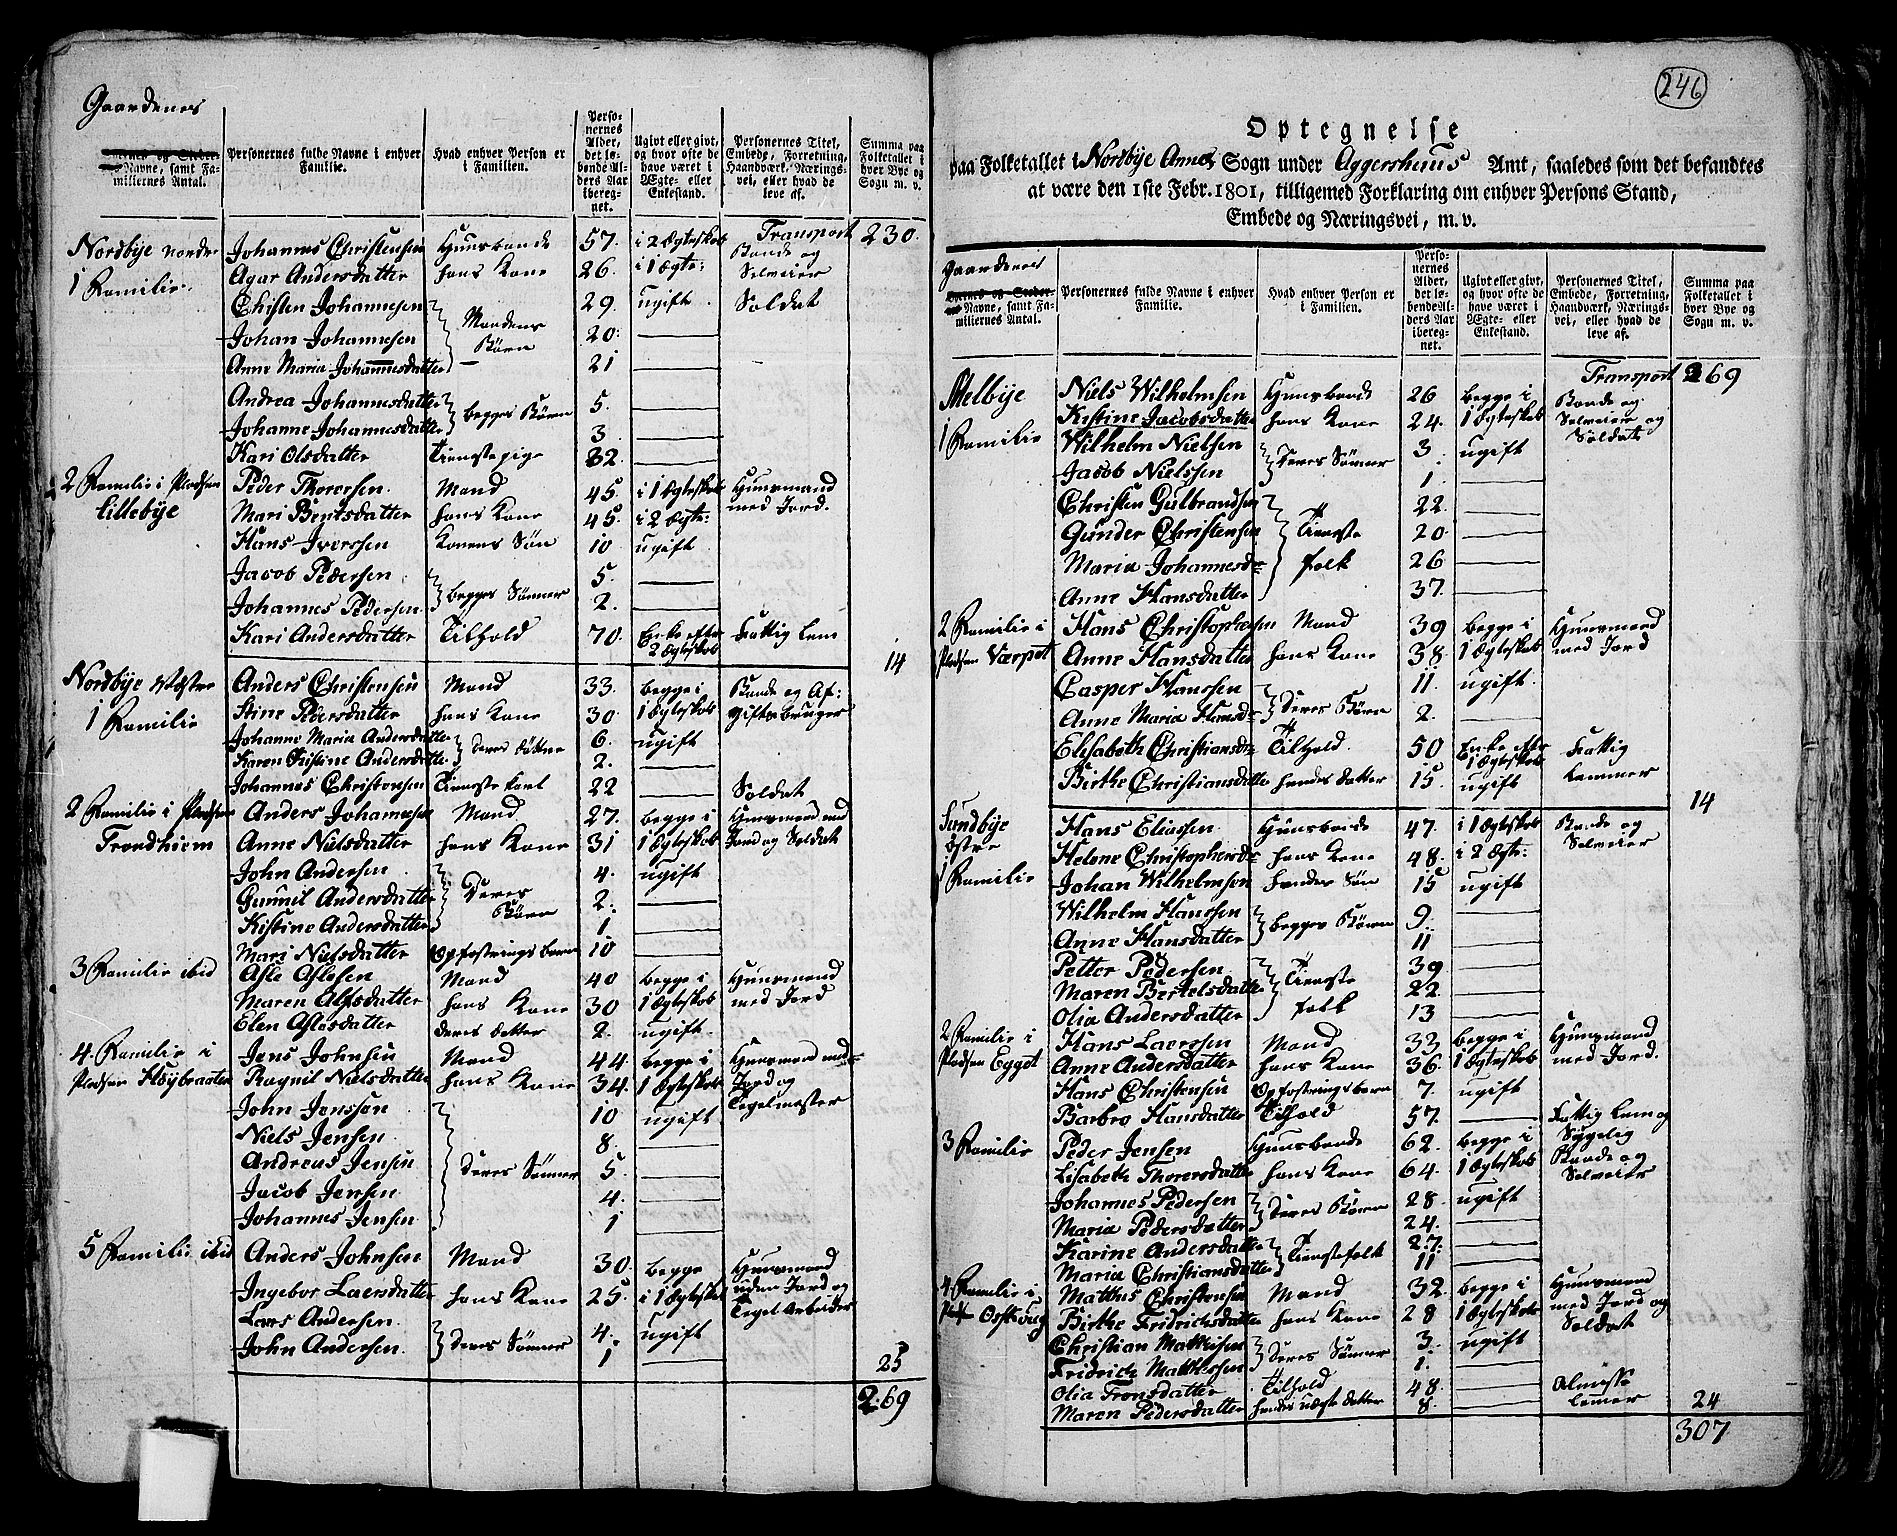 Gaardenes
Byernes og Stedernes Navne, samt Familiernes Antal.
Personernes fulde Navne i enhver Familie.
Hvad enhver Person er i Familien.
Personernes Alder, det løbende Alders Aar iberegnet.
Ugivt eller givt, og hvor ofte de have været i Ægte- eller Enkestand.
Personernes Titel, Embede, Forretning, Haandværk, Næringsvei, eller hvad de leve af.
Summa paa Folketallet i hver Bye og Sogn m. v.
Transport 230.
Nordbye nordre Johannes Christensen Huusbonde 57. i 2 Ægteskab Bonde og
1 Familie. Agar Andersdatter hans Kone 26. i 1 Ægte: Selveier
Christen Johannesen Mandens Børn 29 ugift Soldat
Johan Johannesen 20.
Anne Maria Johannesdatter 21
Andrea Johannesdatter begges Børn 5.
Johanne Johannesdatter 3.
Kari Olsdatter Tienstepige 32.
2 Familie i Pladsen Peder Thorersen Mand 45. i 1 Ægteskab Huusmand
Lillebye Mari Bentsdatter hans Kone 45. i 2 Ægte: med Jord.
Hans Iversen Konens Søn 10 ugift
Jacob Pedersen begges Sønner 5.
Johannes Pedersen 2.
Kari Andersdatter Tilhold 70. Enke efter 2 Ægteskab Fattig Lem
14
Nordbye Westre Anders Christensen Mand 33. begge i Bonde og Af-
1 Familie Stine Pedersdatter hans Kone 30. 1 Ægteskab gifts bruger
Johanne Maria Andersdatter deres døttre 6. ugift
Karen Kistine Andersdatter 2.
Johannes Christensen Tienestekarl 22 Soldat
2 Familie i Pladsen Anders Johannesen Mand 27. begge i Huusmand med
Trondhiem Anne Nielsdatter hans Kone 31 1 Ægteskab Jord og Soldat
John Andersen Deres Børn 4. ugift
Gunnil Andersdatter 2.
Kistine Andersdatter 1
Mari Nielsdatter Opfostrings barn 10
3 Familie ibid Asle Aslesen Mand 40 begge i Huusmand
Maren Alfsdatter hans Kone 30 1 Ægteskab med Jord
Elen Aslesdatter deres datter 2. ugift
4. Familie i Jens Johnsen Mand 44. begge i Huusmand med
Pladsen Høybraaten Ragnil Nielsdatter hans Kone 34. 1 Ægteskab Jord og
John Jenssen Deres Sønner 10 ugift Tegelmester
Niels Jensen 8.
Andreas Jensen 5.
Jacob Jensen 4.
Johannes Jensen 1
5 Familie ibid Anders Johnsen Mand 30. begge Huusmand
Ingebor Laersdatter hans Kone 25. i 1 Ægteskab uden Jord og
Lars Andersen Deres Sønner 4. ugift Tegel Arbeider
John Andersen 1
25
269
246
Optegnelse
paa Folketallet i Nordbye Annex Sogn under Aggershuus Amt, saaledes som det befandtes
at være den 1ste Febr. 1801, tilligemed Forklaring om enhver Persons Stand,
Embede og Næringsvei, m. v.
Gaardenes
Byernes og Stedernes Navne, samt Familiernes Antal.
Personernes fulde Navne i enhver Familie.
Hvad enhver Person er i Familien.
Personernes Alder, det løbende Alders Aar iberegnet.
Ugivt eller givt, og hvor ofte de have været i Ægte- eller Enkestand.
Personernes Titel, Embede, Forretning, Haandværk, Næringsvei, eller hvad de leve af.
Summa paa Folketallet i hver Bye og Sogn m. v.
Transport 269
Melbye Niels Wilhelmsen Huusbonde 26 begge i Bonde og
Kistine Jacobsdatter hans Kone 24. 1 Ægteskab Selveier og
1 Familie Wilhelm Nielsen Deres Sønner 3. ugift Soldat
Jacob Nielssen 1.
Christen Gulbrandsen Tieneste folk 22.
Gunder Christensen 20.
Maria Johannesdr 26
Anne Hansdatter 37.
2 Familie i Hans Christophersen Mand 39 begge i Huusmand
Pladsen Værpet Anne Hansdatter hans Kone 38. 1 Ægteskab med Jord
Casper Hanssen Deres Børn 11. ugift.
Anne Maria Hansdr 2.
Elisabeth Christiansdr Tilhold. 50 Enke efter 1 Ægteskab Fattig
Birthe Christiansdatter hendes datter 15. ugift Lemmer
14
Sundbye Hans Eliassen Huusbonde 47. i 1 Ægteskab Bonde og
Østre Helene Christophersdr hans Kone 48. i 2 Ægte: Selveier
1 Familie Johan Wilhelmsen hendes Søn 15 ugift
Wilhelm Hanssen begges Børn 9.
Anne Hansdatter 11
Petter Pedersen Tieneste folk 39
Maren Bertelsdatter 22.
Olia Andersdatter 13
2 Familie i Hans Laerssen Mand 33 begge i Huusmand
Pladsen Egget Anne Andersdatter hans Kone 36. 1 Ægteskab med Jord.
Hans Christensen Opfostrings barn 7. ugift
Barbro Hansdatter Tilhold 57. Fattig Lem og Sygelig
3 Familie Peder Jensen Huusbonde 62. begge i Bonde og
Lisabeth Thorersdatter hans Kone 64. 1 Ægteskab Selveier
Johannes Pedersen Deres Børn 28. ugift
Maria Pedersdatter 24.
Karine Andersdatter Tienestefolk 27.
Maria Christiansdatter 11
4 Familie i Mathis Christensen Mand 32. begge i Huusmand
Birthe Fridrichsdatter hans Kone 28 1 Ægteskab med Jord og
Christian Mathisen Deres Sønner 3. ugift Soldat
Fridrich Mathissen 1.
Olia Tronsdatter Tilhold 48. Almisse
Maren Pedersdatter hendes uægte datter 8. Lemer 24
307